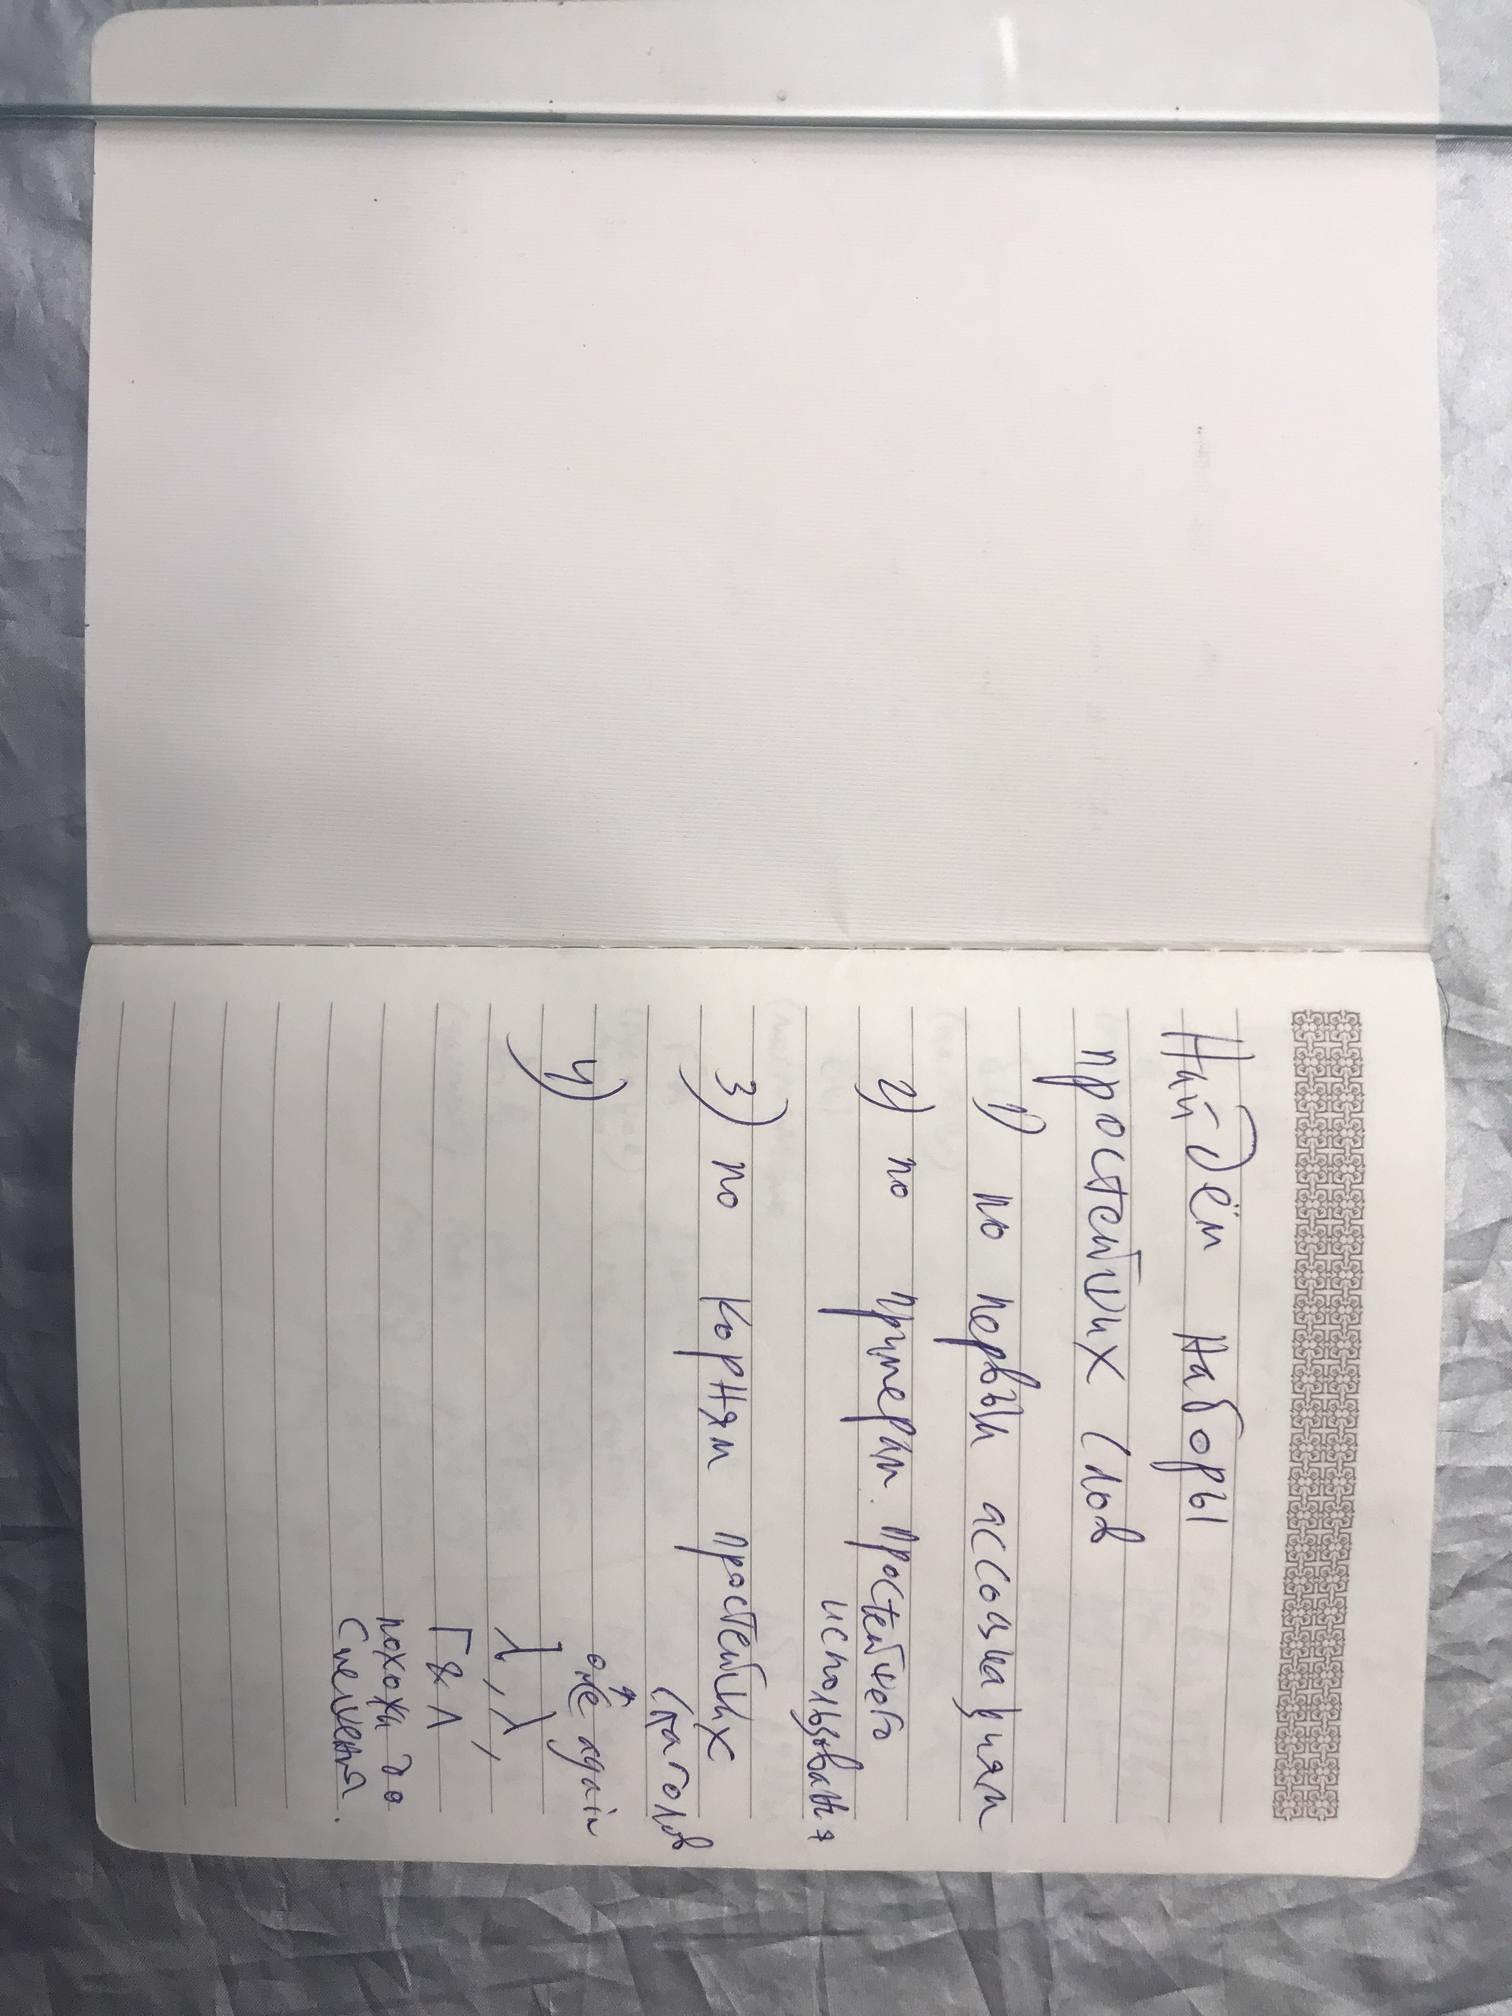 Найдём наборы
простейших слов
1) по первым ассоциациям
2) по примерам простейшего
использования
3) по корням простейших
глаголов
4)
once again
λ, λ,
Г & Л
похожи до
смешения.